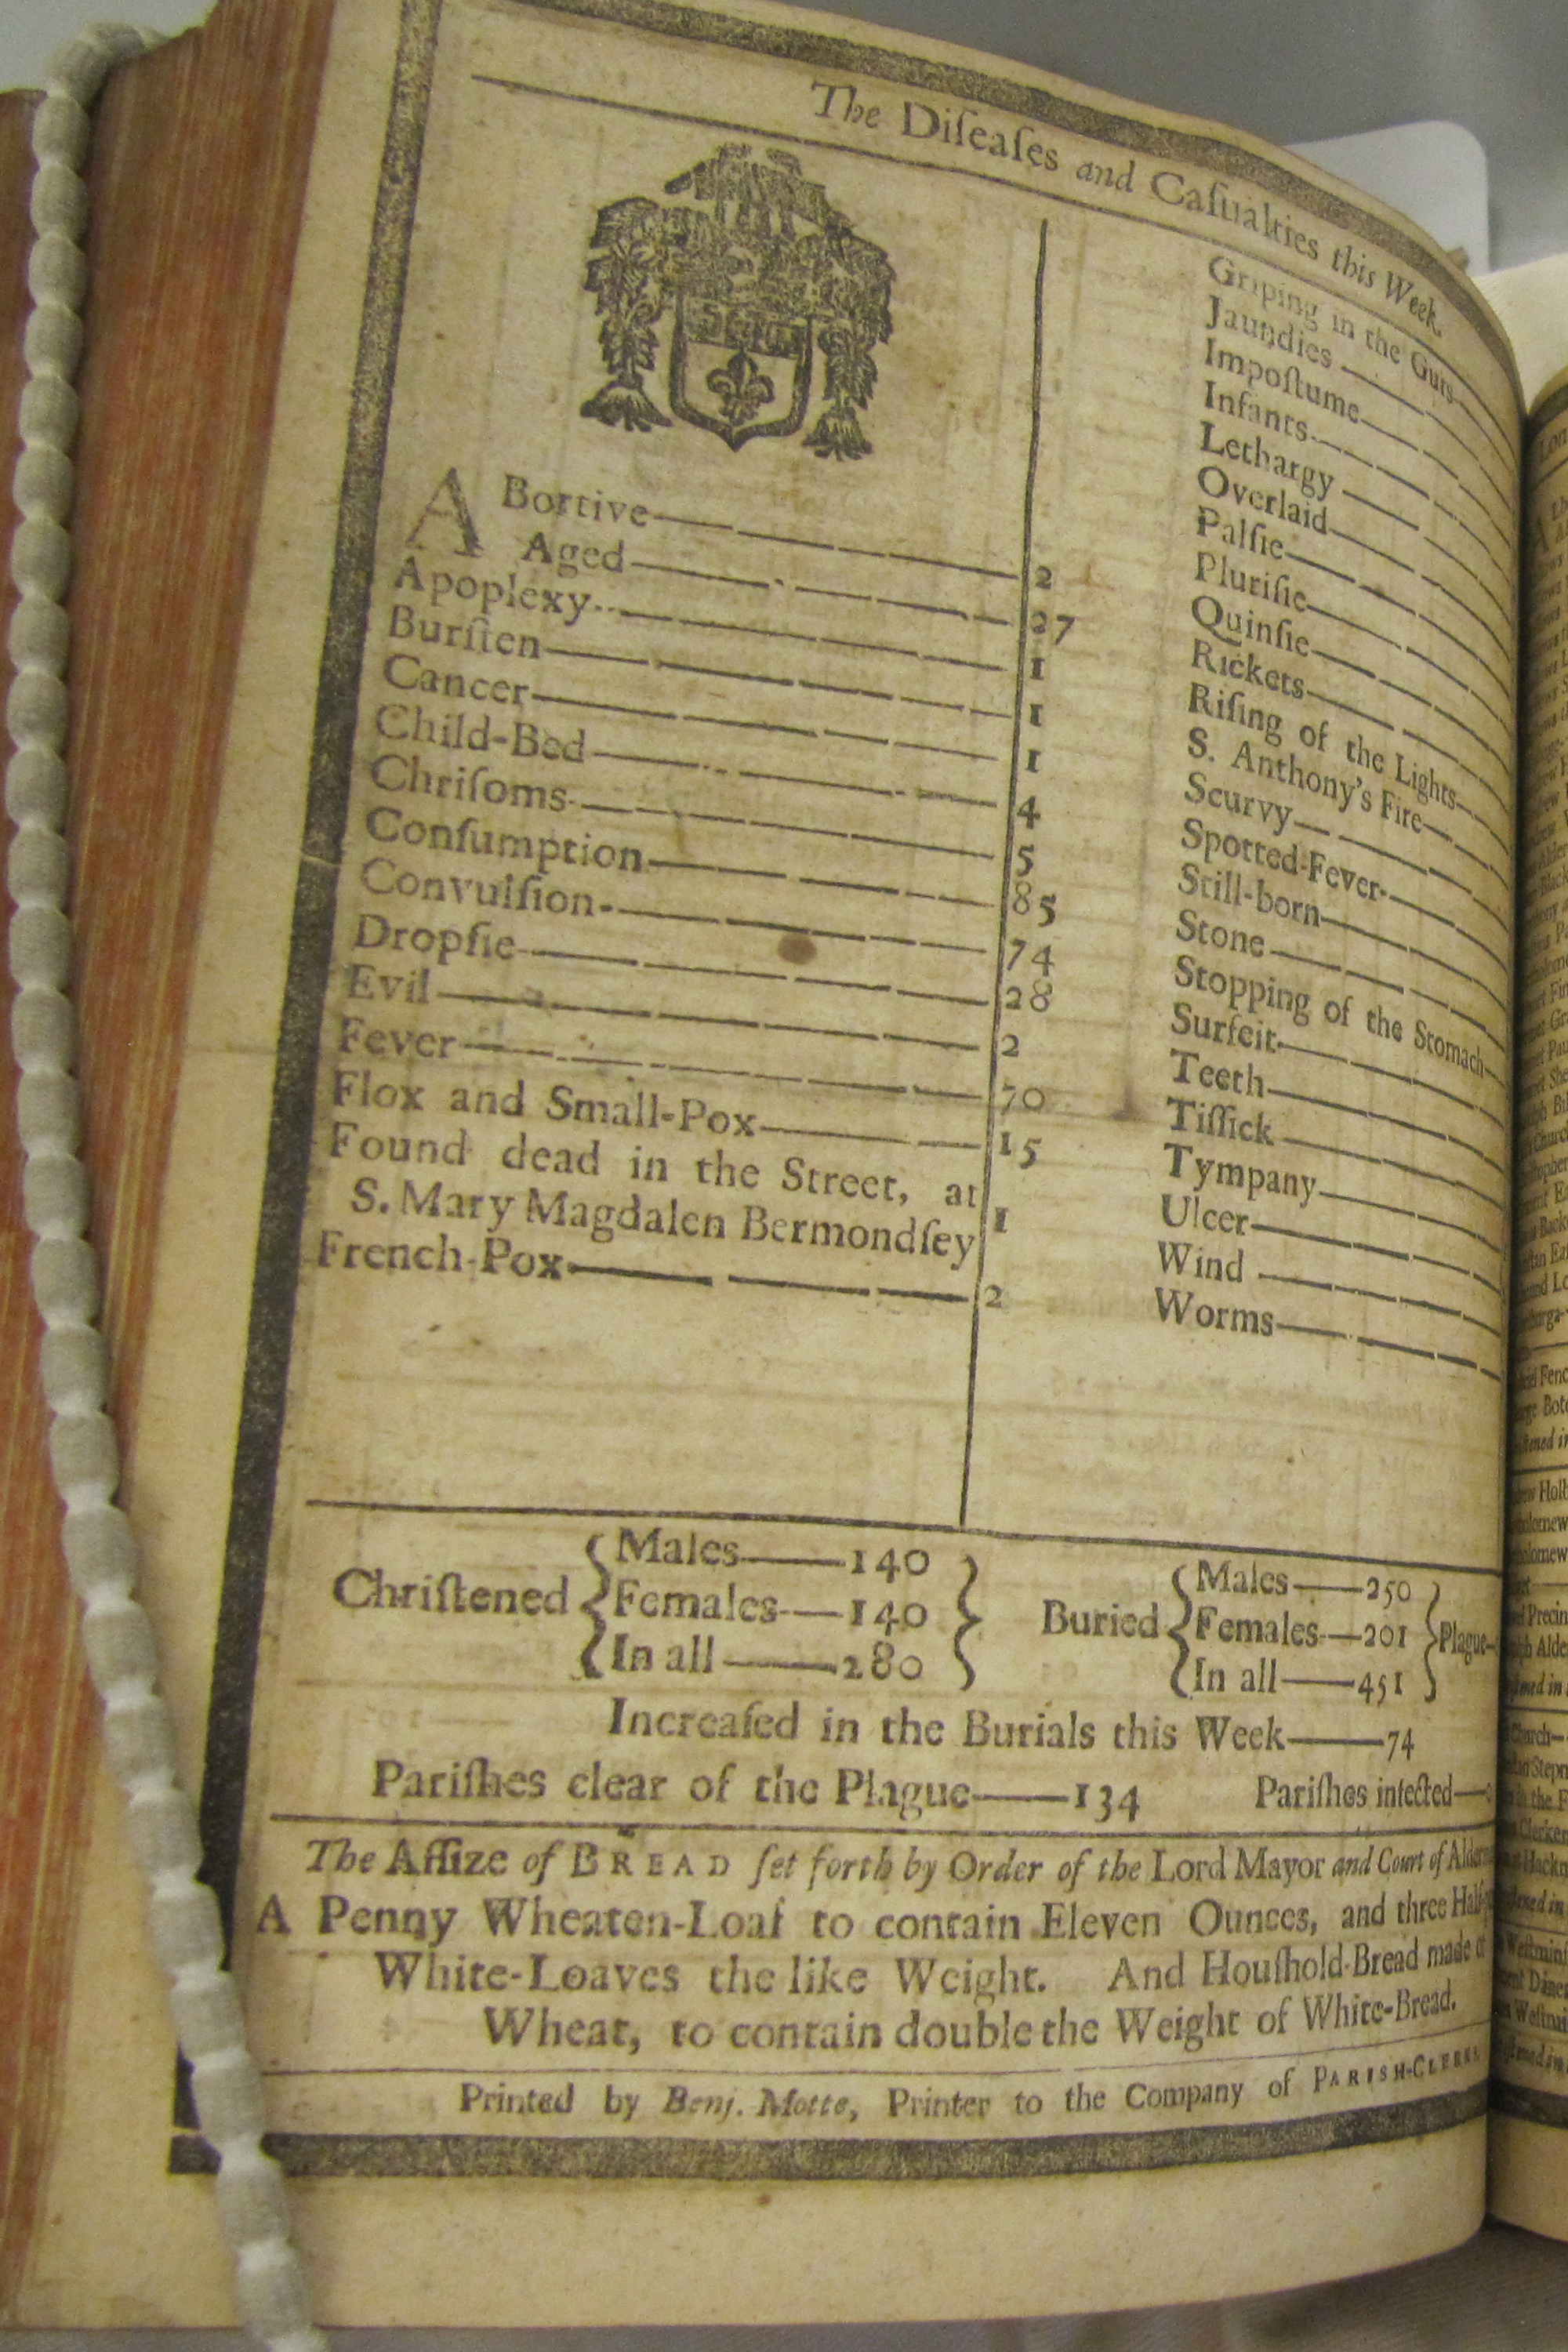 The Diſeaſes and Caſualties this Week.
ABortive 2
Aged 27
Apoplexy 1
Burſten 1
Cancer 1
Child-Bed 4
Chriſoms 5
Conſumption 85
Convulſion 74
Dropſie 28
Evil 2
Fever 70
Flox and Small-Pox 15
Found dead in the Street, at
S. Mary Magdalen Bermondſey 1
French-Pox 2
Griping in the Guts
Jaundies
Impoſtume
Infants
Lethargy
Overlaid
Palſie
Pluriſie
Quinſie
Rickets
Riſing of the Lights
S. Anthony's Fire
Scurvy
Spotted-Fever
Still-born
Stone
Stopping of the Stomach
Surfeit
Teeth
Tiſſick
Tympany
Ulcer
Wind
Worms
Chriſtened { Males—140
Females—140
In all—280 }
Buried { Males—250
Females—201
In all—451 } Plague
Increaſed in the Burials this Week—74
Pariſhes clear of the Plague—134 Pariſhes infected—
The Aſſize of BREAD ſet forth by Order of the Lord Mayor and Court of
A Penny Wheaten-Loaf to contain Eleven Ounces, and three
White-Loaves the like Weight. And Houſhold-Bread made of
Wheat, to contain double the Weight of White-Bread.
Printed by Benj. Motte, Printer to the Company of PARISH-CLERKS